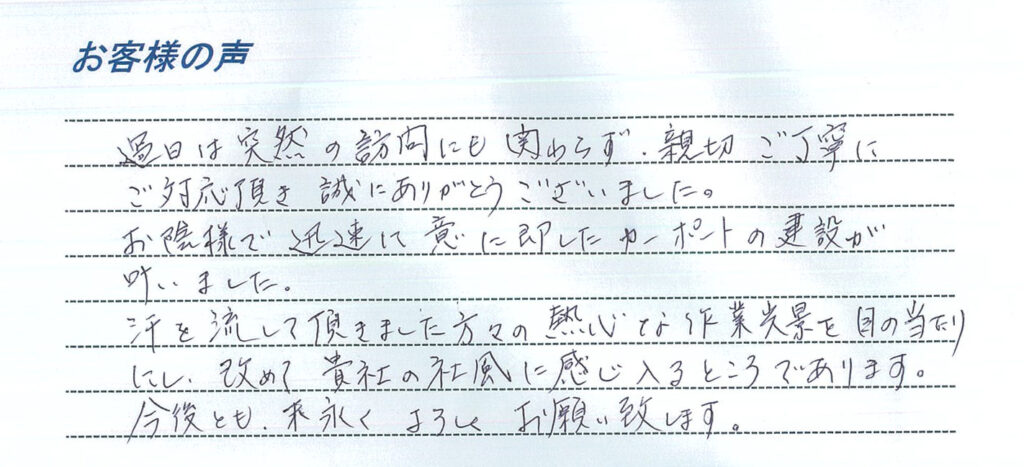 お客様の声
過日は突然の訪問にも関わらず、親切ご丁寧に
ご対応頂き誠にありがとうございました。
お陰様で迅速に意に即したカーポートの建設が
叶いました。
汗を流して頂きました方々の熱心な作業光景を目の当たり
にし、改めて貴社の社風に感じ入るところであります。
今後とも、末永くよろしくお願い致します。